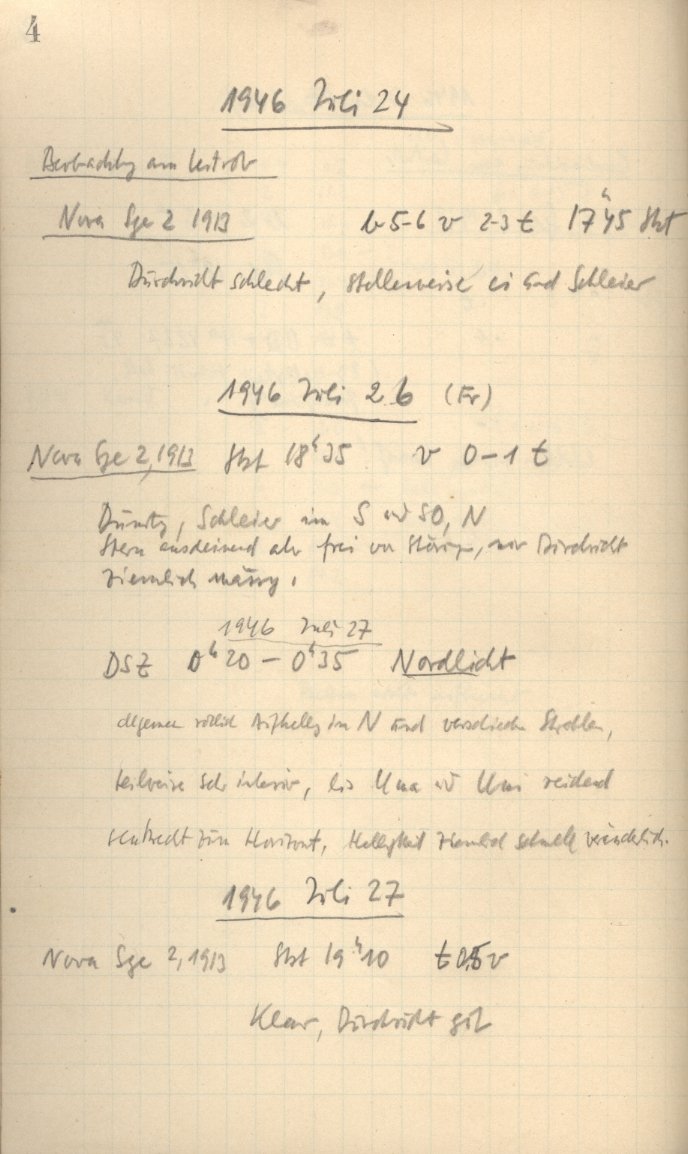 4
1946 Juli 24
Beobachtg am Leitrohr
Nova Sge 2 1913 b 5-6 v 2-3 t 17ʰ45 Stzt
Durchsicht schlecht, stellenweise ci und Schleier
1946 Juli 26 (Fr)
Nova Sge 2, 1913 Stzt 18ʰ35 v 0-1 t
Dunstig, Schleier im S und SO, N
Stern anscheinend aber frei von Störungen, nur Durchsicht
ziemlich mässig.
1946 Juli 27
DSZ 0ʰ20 - 0ʰ35 Nordlicht
Allgemein rötlich Aufhellg im N und verschiedene Strahlen,
teilweise sehr intensiv, bis Uma und Umi reichend
senkrecht zum Horizont, Helligkeit ziemlich schnell veränderlich.
1946 Juli 27
Nova Sge 2, 1913 Stzt 19ʰ10 t 0,5 v
Klar, Durchsicht gut